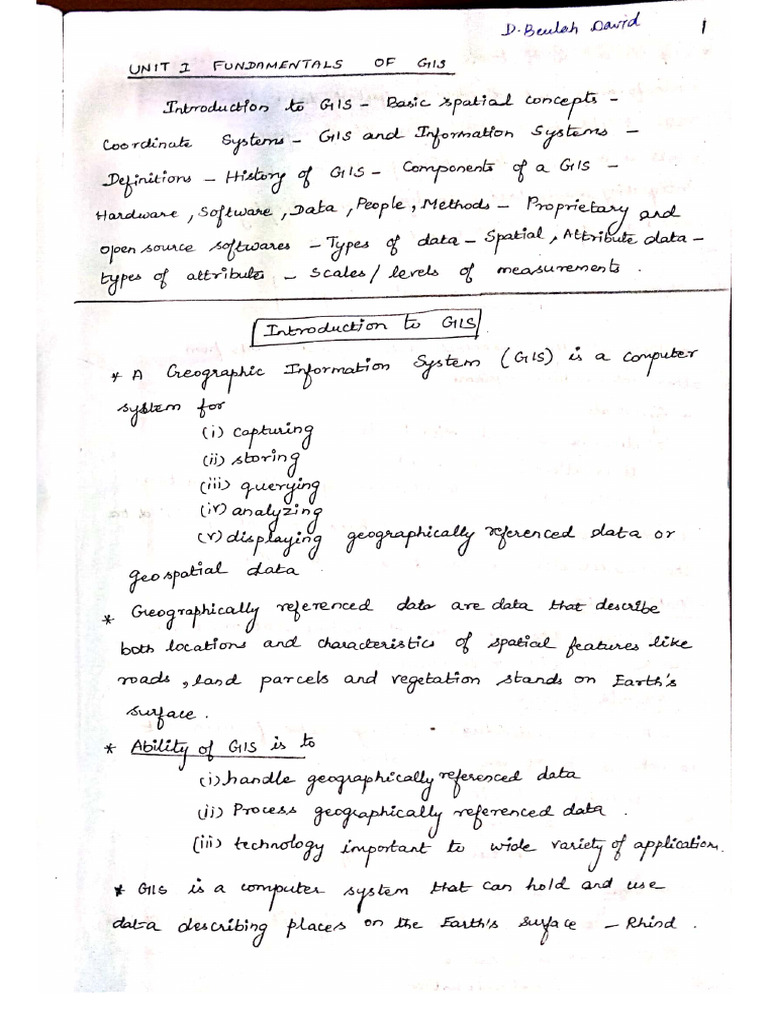 D. Beulah David 1
UNIT I FUNDAMENTALS OF GIS
Introduction to GIS - Basic spatial concepts -
Coordinate Systems - GIS and Information Systems -
Definitions - History of GIS - Components of a GIS -
Hardware, Software, Data, People, Methods - Proprietary and
open source softwares - Types of data - Spatial, Attribute data -
types of attributes - scales / levels of measurements.
Introduction to GIS
* A Geographic Information System (GIS) is a computer
system for
(i) capturing
(ii) storing
(iii) querying
(iv) analyzing
(v) displaying geographically referenced data or
geospatial data
* Geographically referenced data are data that describe
both locations and characteristics of spatial features like
roads, land parcels and vegetation stands on Earth's
surface.
* Ability of GIS is to
(i) handle geographically referenced data
(ii) Process geographically referenced data.
(iii) technology important to wide variety of application.
* GIS is a computer system that can hold and use
data describing places on the Earth's surface - Rhind.